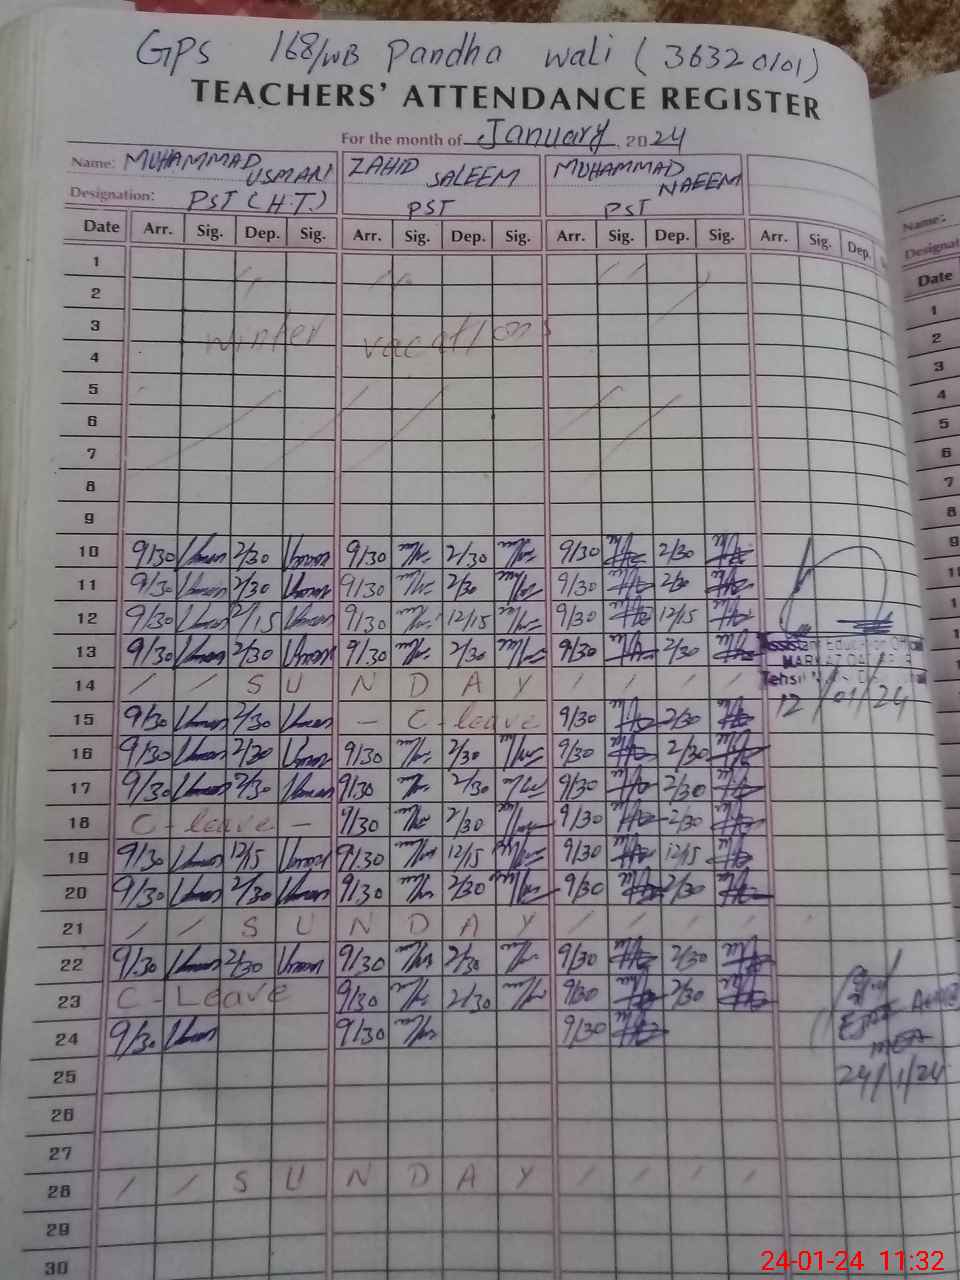 GPS 168/WB Pandha Wali (36320101)
TEACHERS' ATTENDANCE REGISTER
For the month of January, 2024
Name: MUHAMMAD USMAN ZAHID SALEEM MUHAMMAD NAEEM
Designation: PST (H.T.) PST PST
Date Arr. Sig. Dep. Sig. Arr. Sig. Dep. Sig. Arr. Sig. Dep. Sig. Arr. Sig. Dep.
1
2
3 Winter vacations
4
5
6
7
8
9
10 9/30 Usman 2/30 Usman 9/30 2/30 9/30 2/30
11 9/30 Usman 2/30 Usman 9/30 2/30 9/30 2/30
12 9/30 Usman 2/15 Usman 9/30 12/15 9/30 12/15
13 9/30 Usman 2/30 Usman 9/30 2/30 9/30 2/30
Assistant Education Officer
MARKAZ
Tehsil
12/01/24
14 / / S U N D A Y / / / /
15 9/30 Usman 2/30 Usman - C-leave 9/30 2/30
16 9/30 Usman 2/30 Usman 9/30 2/30 9/30 2/30
17 9/30 Usman 2/30 Usman 9/30 2/30 9/30 2/30
18 C-leave - 9/30 2/30 9/30 2/30
19 9/30 Usman 12/15 Usman 9/30 12/15 9/30 12/15
20 9/30 Usman 2/30 Usman 9/30 2/30 9/30 2/30
21 / / S U N D A Y / / / / /
22 9/30 Usman 2/30 Usman 9/30 2/30 9/30 2/30
23 C-Leave 9/30 2/30 9/30 2/30
24 9/30 Usman 9/30 9/30
24/1/24
25
26
27
28 / / S U N D A Y / / / /
29
30
Name:
Date
1
2
3
4
5
6
7
8
9
24-01-24 11:32